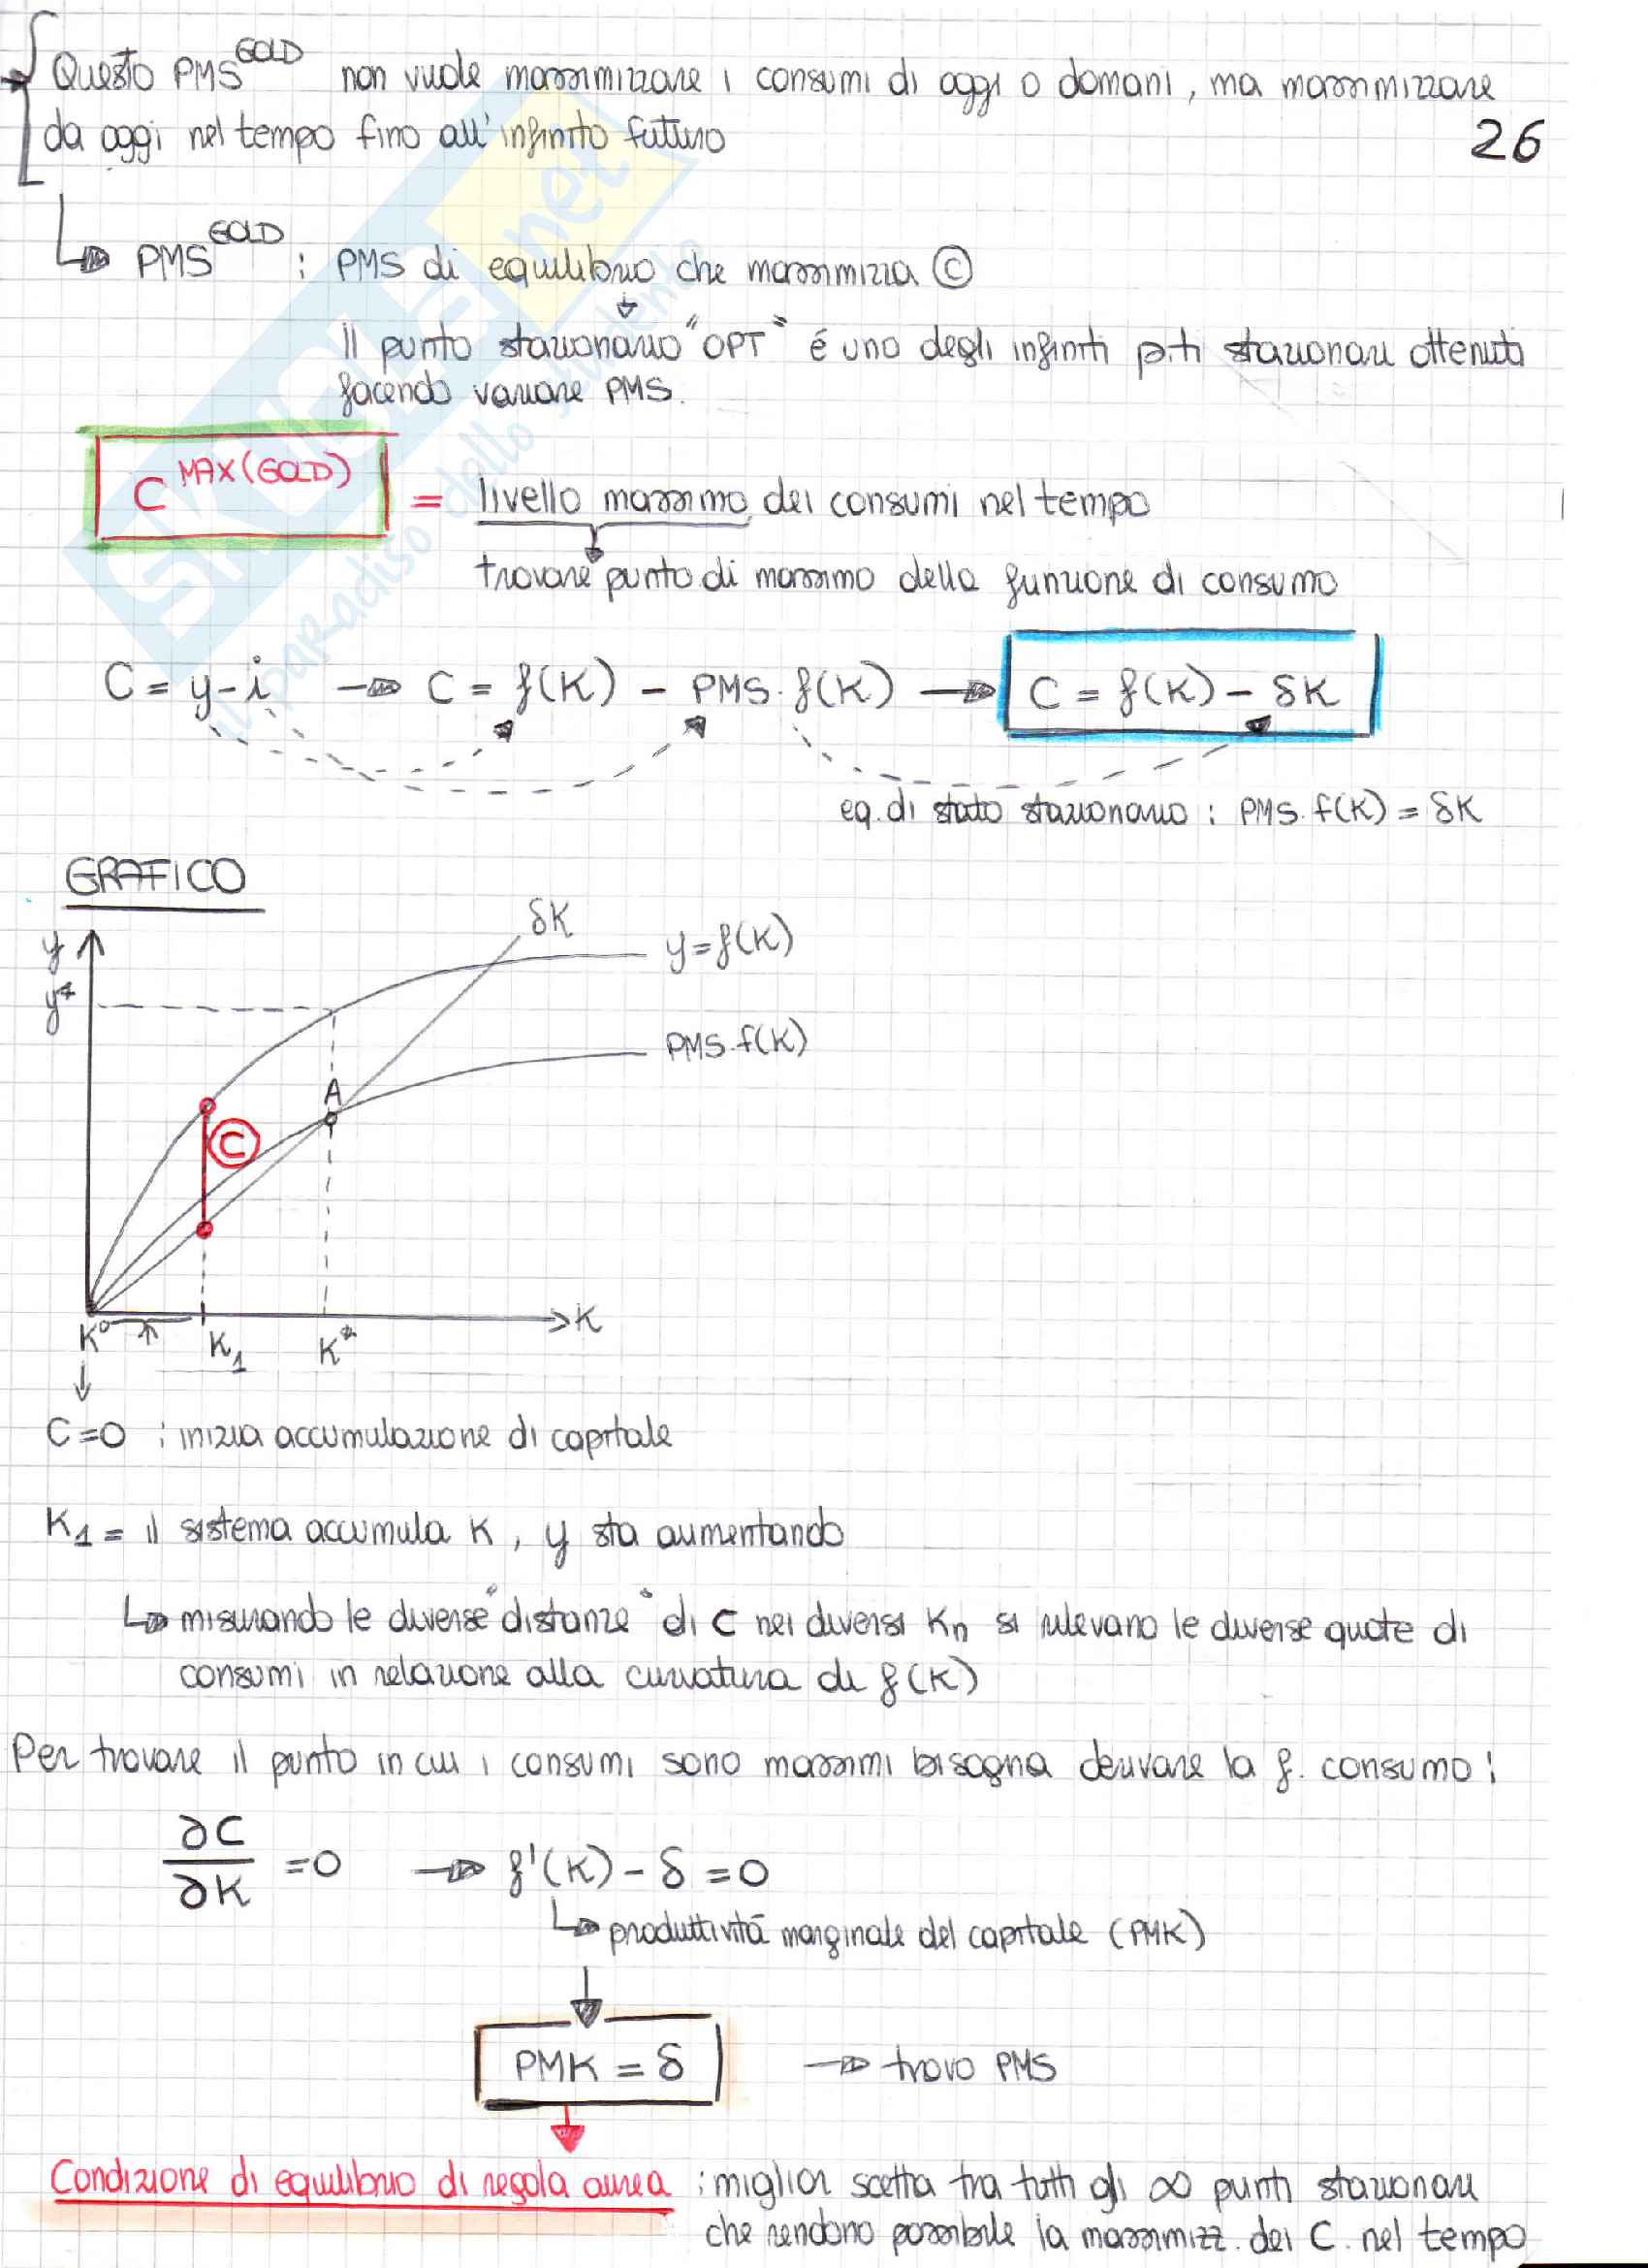 Questo PMS^GOLD non vuole massimizzare i consumi di oggi o domani, ma massimizzare
da oggi nel tempo fino all'infinito futuro
26
PMS^GOLD : PMS di equilibrio che massimizza ©
Il punto stazionario "OPT" é uno degli infiniti p.ti stazionari ottenuti
facendo variare PMS.
C^MAX(GOLD) = livello massimo dei consumi nel tempo
trovare punto di massimo della funzione di consumo
C = y - i → C = f(K) - PMS · f(K) → C = f(K) - δK
eq. di stato stazionario : PMS · f(K) = δK
GRAFICO
δK
y
y=f(K)
y*
PMS · f(K)
A
C
K° K₁ K* K
C=0 : inizia accumulazione di capitale
K₁ = il sistema accumula K, y sta aumentando
misurando le diverse "distanze" di C nei diversi Kn si rilevano le diverse quote di
consumi in relazione alla curvatura di f(K)
Per trovare il punto in cui i consumi sono massimi bisogna derivare la f. consumo :
∂C/∂K = 0 → f'(K) - δ = 0
produttività marginale del capitale (PMK)
PMK = δ → trovo PMS
Condizione di equilibrio di regola aurea : miglior scelta tra tutti gli ∞ punti stazionari
che rendono possibile la massimizz. dei C. nel tempo
SKUOLA.net
il paradiso dello studente